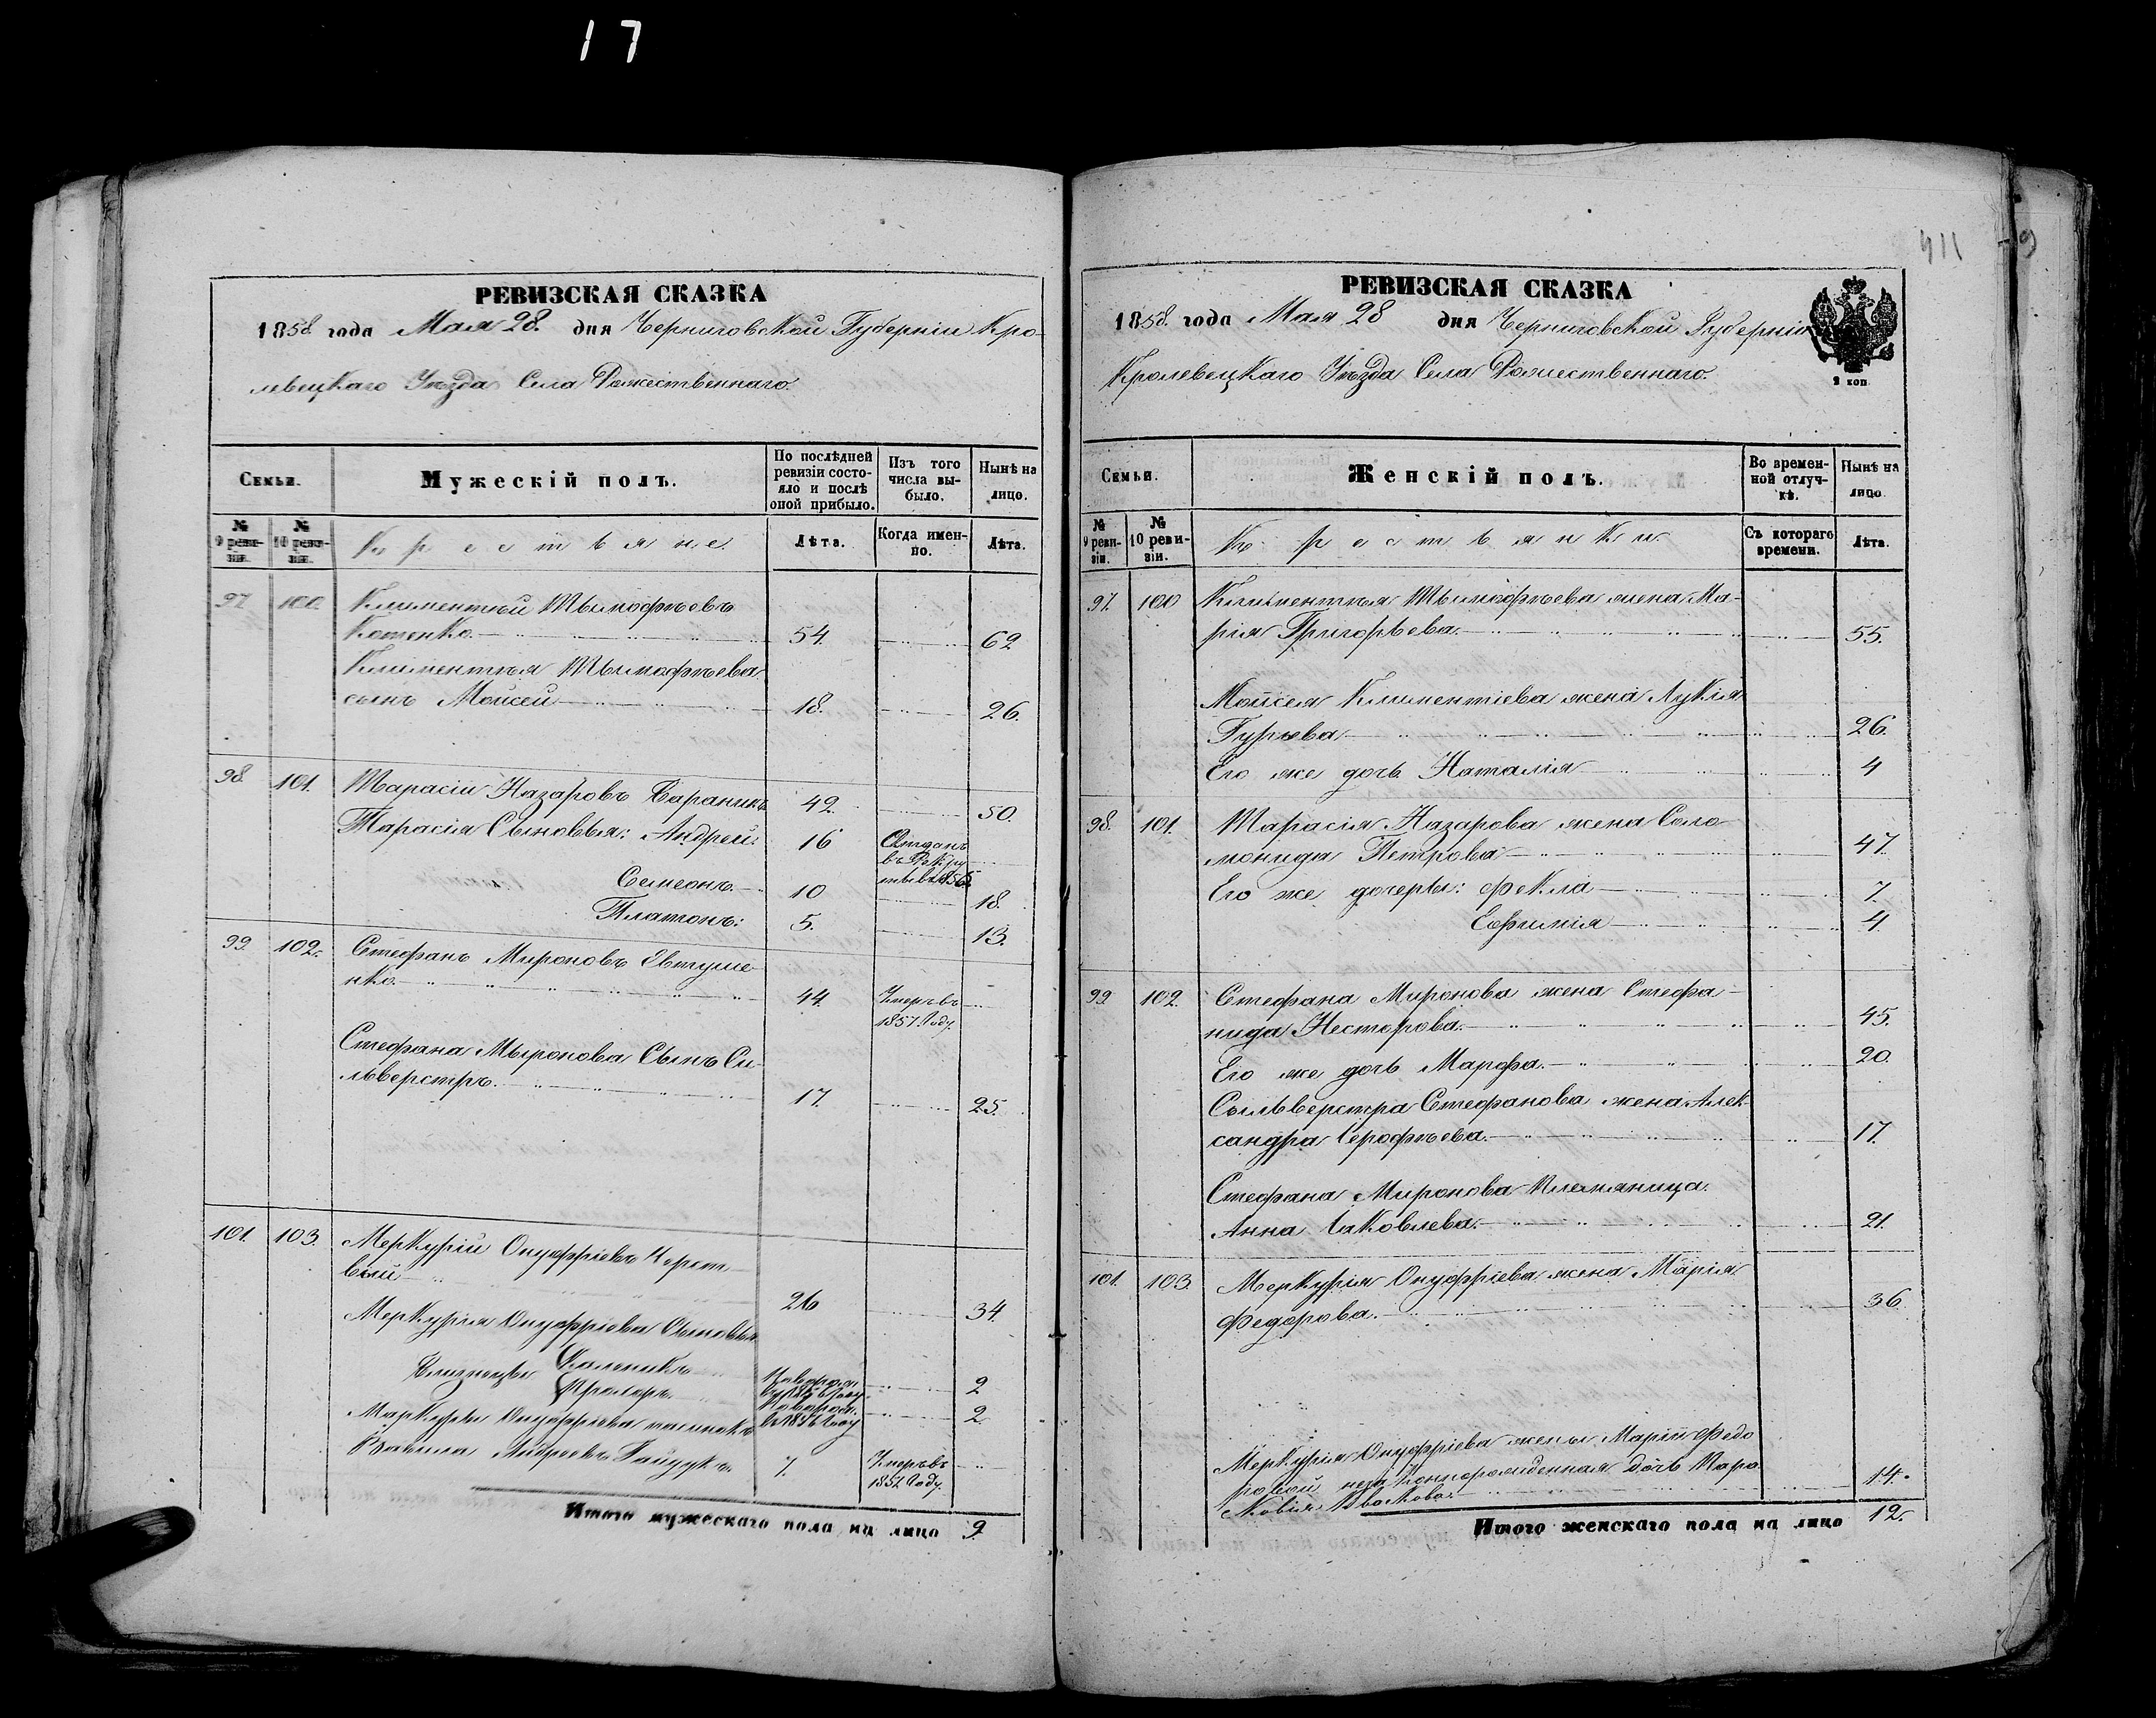 17
РЕВИЗСКАЯ СКАЗКА
1858. года Мая 28. дня Черниговской Губерніи Кро-
левецкаго Уѣзда Села Рожественнаго.
Семьи.
Мужескій полъ.
По послѣдней ревизіи состояло и послѣ оной прибыло.
Изъ того числа выбыло.
Нынѣ на лицо.
№ 9 ревизіи.
№ 10 ревизіи.
Крестьяне.
Лѣта.
Когда именно.
Лѣта.
97. 100. Климентій Тымофѣевъ
Котенко. 54. 62
Климентія Тымофѣева
сынъ Мойсей 18. 26.
98 101. Тарасій Назаровъ Бараникъ 42. 50.
Тарасія Сыновья: Андрей: 16 Отданъ
въ Рекру
ты въ 1855
Семеонъ. 10 18.
Платонъ: 5. 13.
99. 102. Стефанъ Мироновъ Евтуше-
нко. 44. Умеръ въ
1857 Году.
Стефана Мыронова Сынъ Си-
льверстръ. 17. 25.
101. 103. Меркурій Онуфріевъ Черст-
вый 26 34.
Меркурія Онуфріева Сыновья
Близнецы Каленикъ Новорож.
въ 1856 Году. 2
Прохоръ. Новорож.
въ 1856 Году 2.
Меркурія Онуфріева пасынокъ
Вакила Андреевъ Гайдукъ. 7. Умеръ въ
1852 Году.
Итого мужескаго пола на лицо 9.
411
9
РЕВИЗСКАЯ СКАЗКА
1858. года Мая 28 дня Черниговской Губерніи
Кролевецкаго Уѣзда Села Рожественнаго.
2 коп
Семьи.
Женскій полъ.
Во временной отлучкѣ.
Нынѣ на лицо.
№ 9 ревизіи.
№ 10 ревизіи.
Крестьянки.
Съ котораго времени.
Лѣта.
97. 100 Климентія Тымофѣева жена Ма-
рія Григорьева. 55.
Мойсея Климентіева жена Лукія
Гурьева 26.
Его же дочь Наталія 4
98. 101. Тарасія Назарова жена Соло-
монида Петрова 47.
Его же дочеры: Фекла 7.
Ефимія 4
99 102. Стефана Миронова жена Стефа-
нида Несторова. 45.
Его же дочь Марфа. 20.
Сыльверстра Стефанова жена Алек-
сандра Ерофѣева. 17.
Стефана Миронова Племяница
Анна Іаковлева. 21.
101. 103. Меркурія Онуфріева жена Марія
Федорова. 36.
Меркурія Онуфріева жены Маріи Федо
ровой дочь Паро- 14.
Итого женскаго пола на лицо 12.